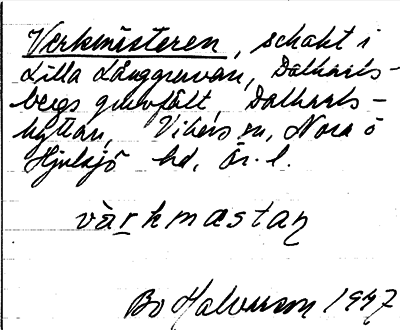 Verkmästeren, schakt i
Lilla Långgruvan, Dalkarls-
bergs gruvfält, Dalkarls-
hyttan, Vikers sn, Nora o
Hjulsjö hd, Ör. l.
värkmæstaɳ
Bo Halvarson 1947